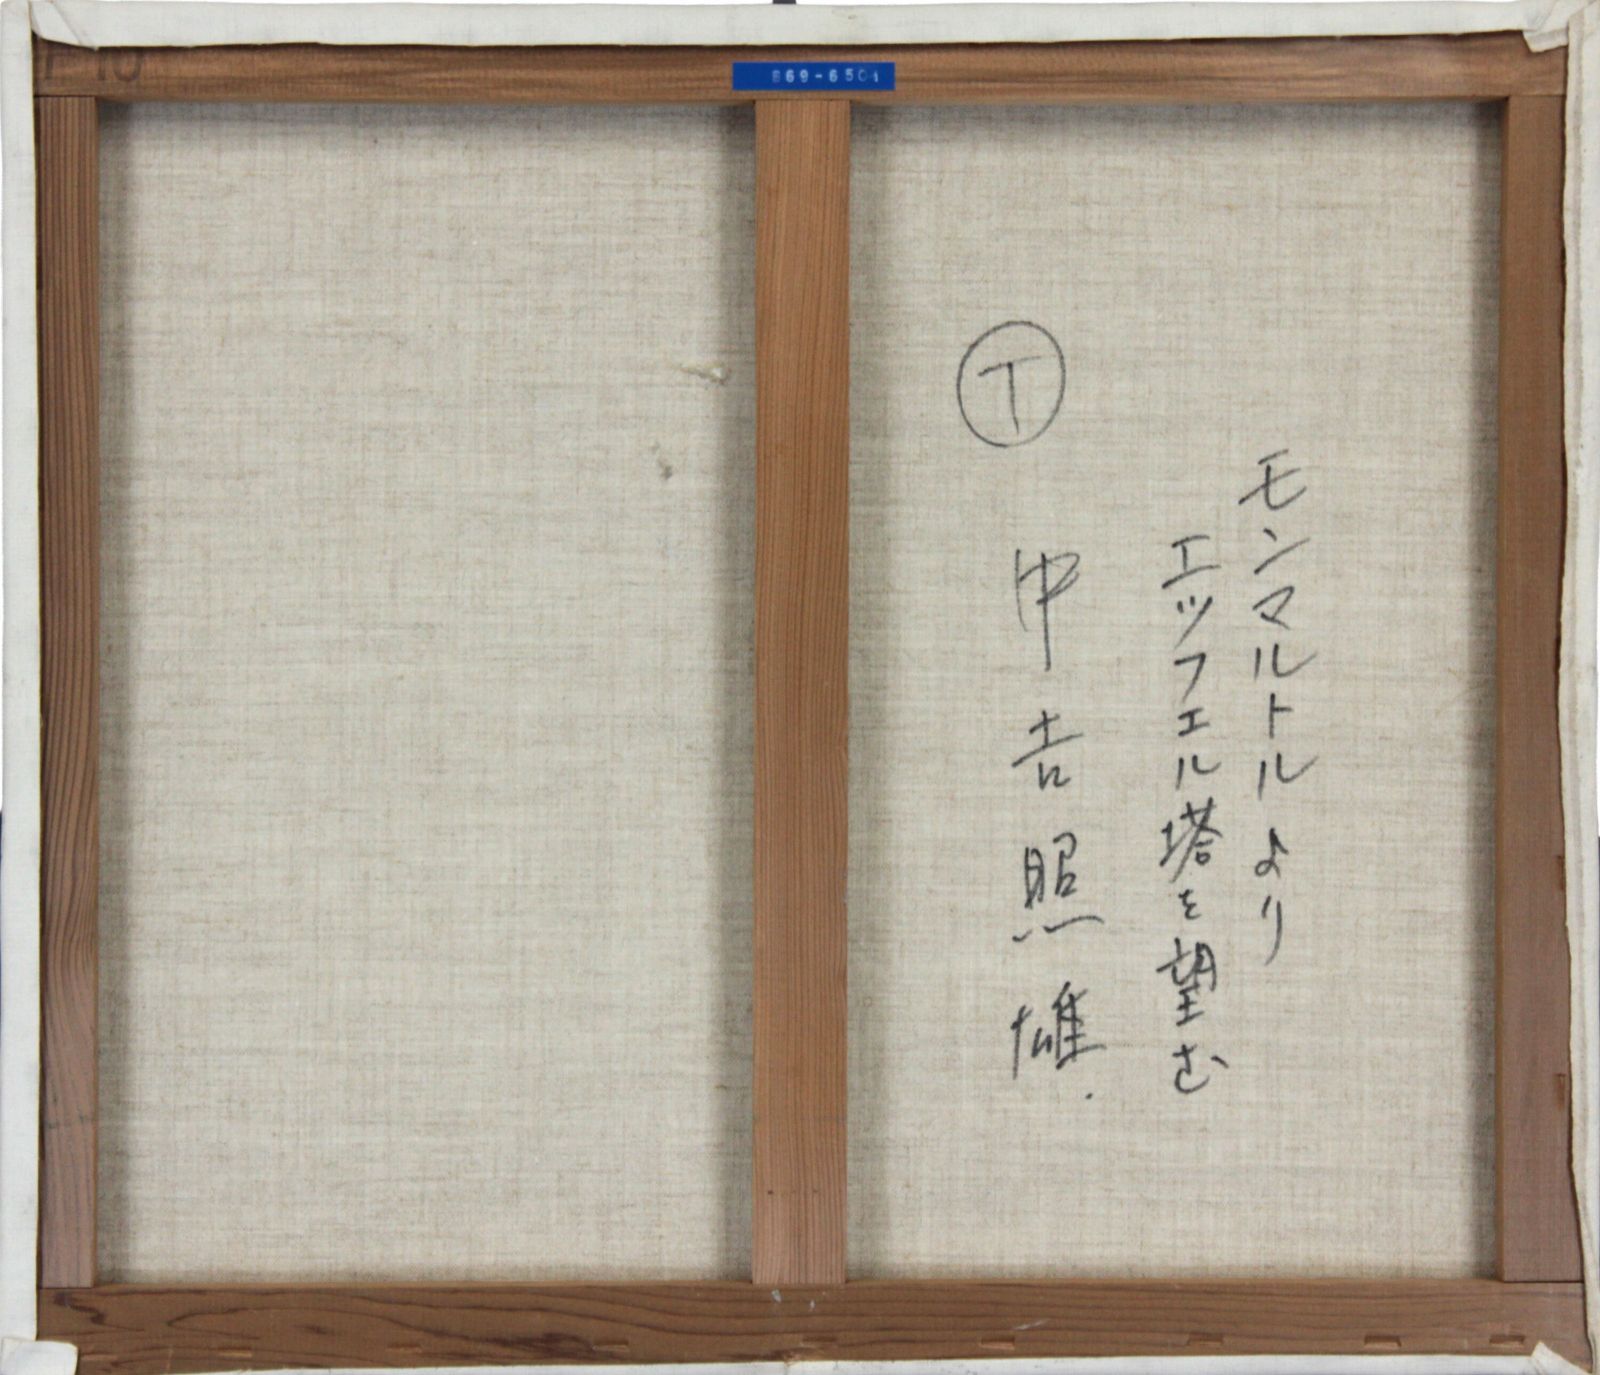 F10
869-6501
モンマルトルより
エッフェル塔を望む
Ⓣ
中吉照雄.